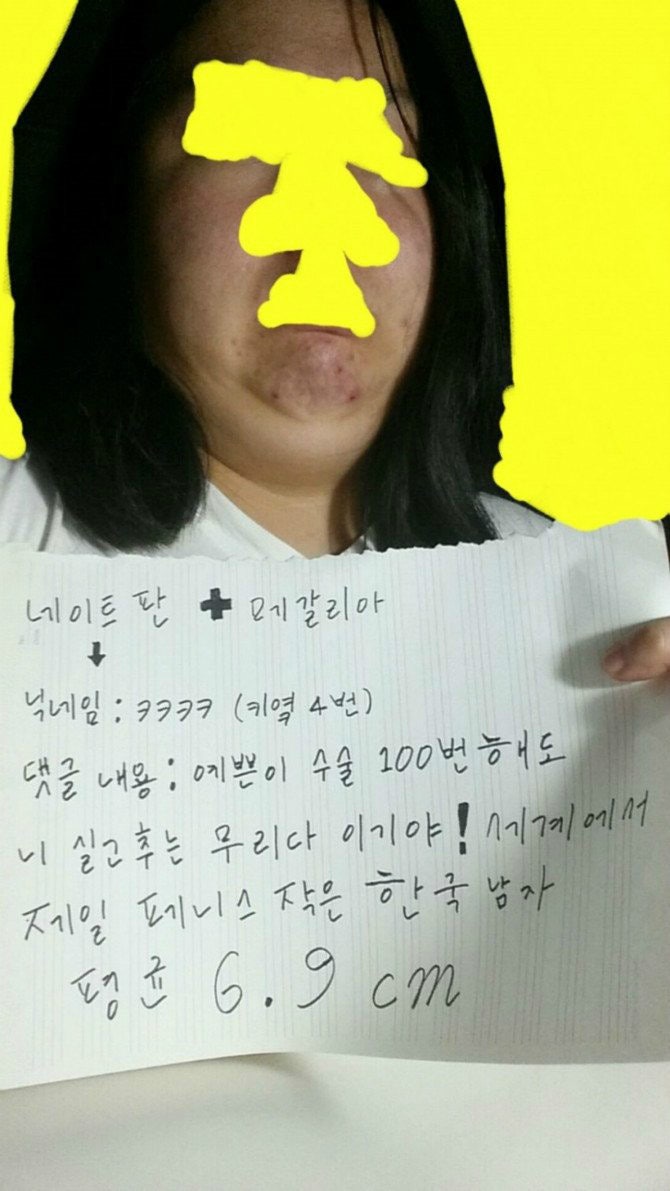 네이트 판 + 메갈리아
↓
닉네임 : ㅋㅋㅋㅋ (키역 4번)
댓글 내용 : 예쁜이 수술 100번 해도
니 실고추는 무리다 이기야! 세계에서
제일 페니스 작은 한국 남자
평균 6.9 cm